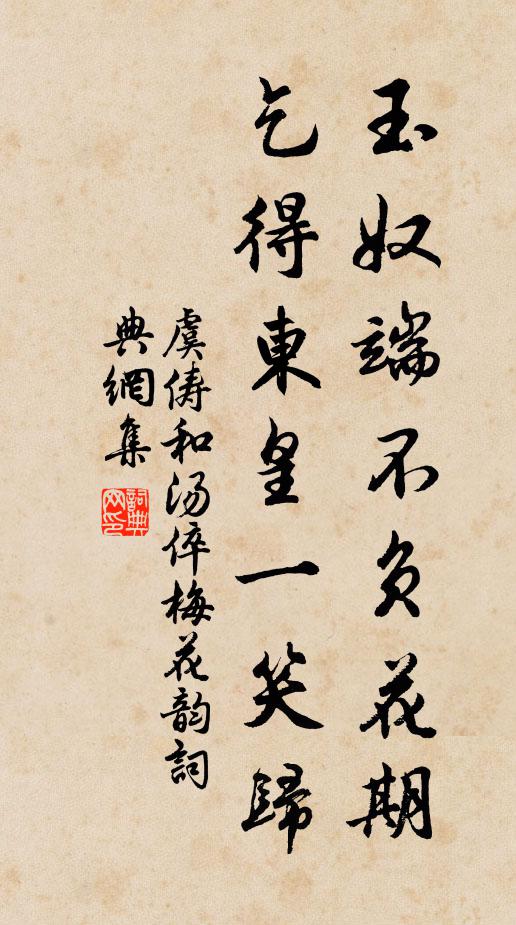 玉奴端不負花期
乞得東皇一笑歸
虞儔和汤倅梅花韵詞
典網集
詞典网印